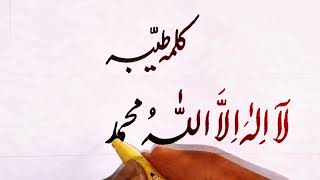 کلمہ طیّبہ
لَآ اِلٰہَ اِلَّا اللّٰہُ محمد